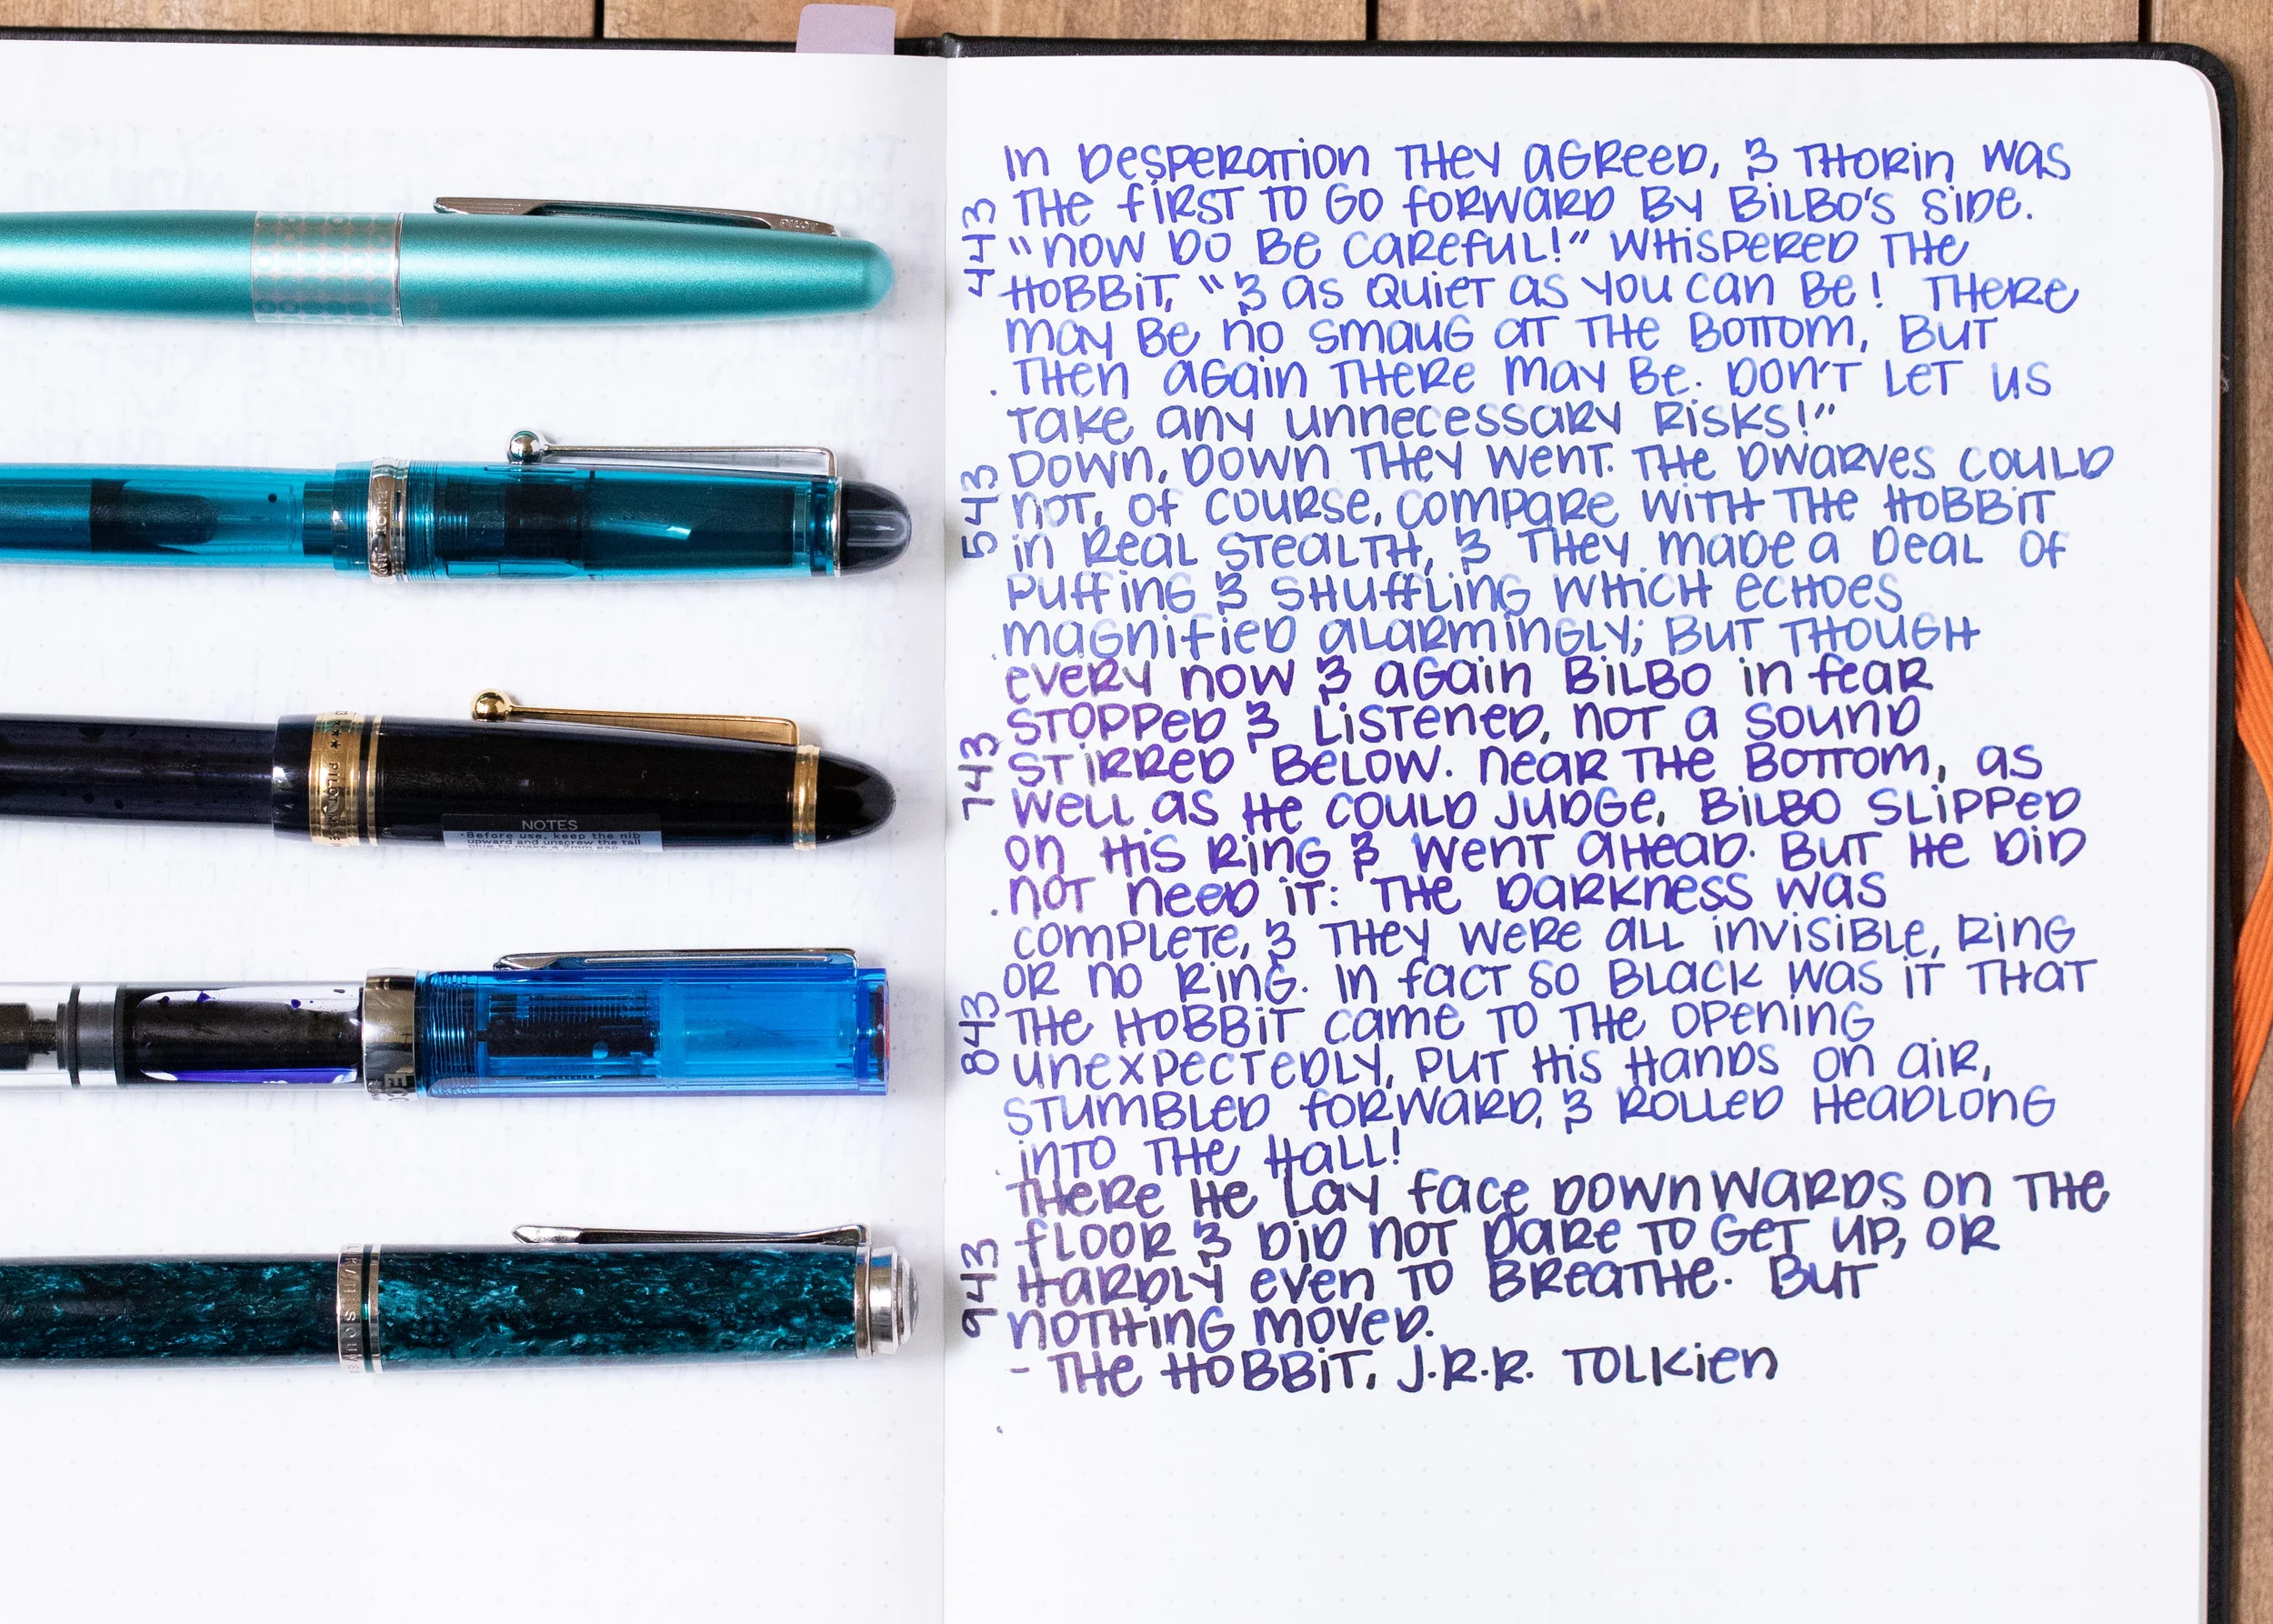 In desperation they agreed, & Thorin was
the first to go forward by Bilbo's side.
"Now do be careful!" whispered the
hobbit, "& as quiet as you can be! There
may be no Smaug at the bottom, but
then again there may be. Don't let us
take any unnecessary risks!"
Down, down they went. The dwarves could
not, of course, compare with the hobbit
in real stealth, & they made a deal of
puffing & shuffling which echoes
magnified alarmingly; but though
every now & again Bilbo in fear
stopped & listened, not a sound
stirred below. Near the bottom, as
well as he could judge, Bilbo slipped
on his ring & went ahead. But he did
not need it: the darkness was
complete, & they were all invisible, ring
or no ring. In fact so black was it that
the hobbit came to the opening
unexpectedly, put his hands on air,
stumbled forward, & rolled headlong
into the hall!
There he lay face downwards on the
floor & did not dare to get up, or
hardly even to breathe. But
nothing moved.
- The Hobbit, J.R.R. Tolkien
443
543
743
843
943
PILOT
PILOT
NOTES
•Before use, keep the nib
upward and unscrew the tail
plug to make a 2mm gap